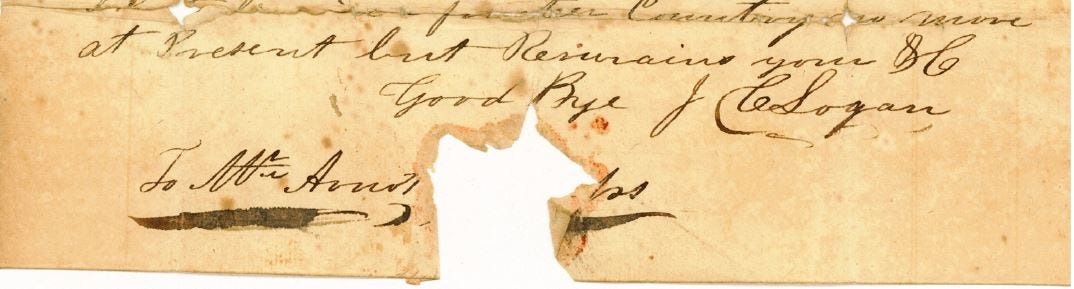 for her Country no more
at Present but Remains your &C
Good Bye J C Logan
To Mr Arno
ss